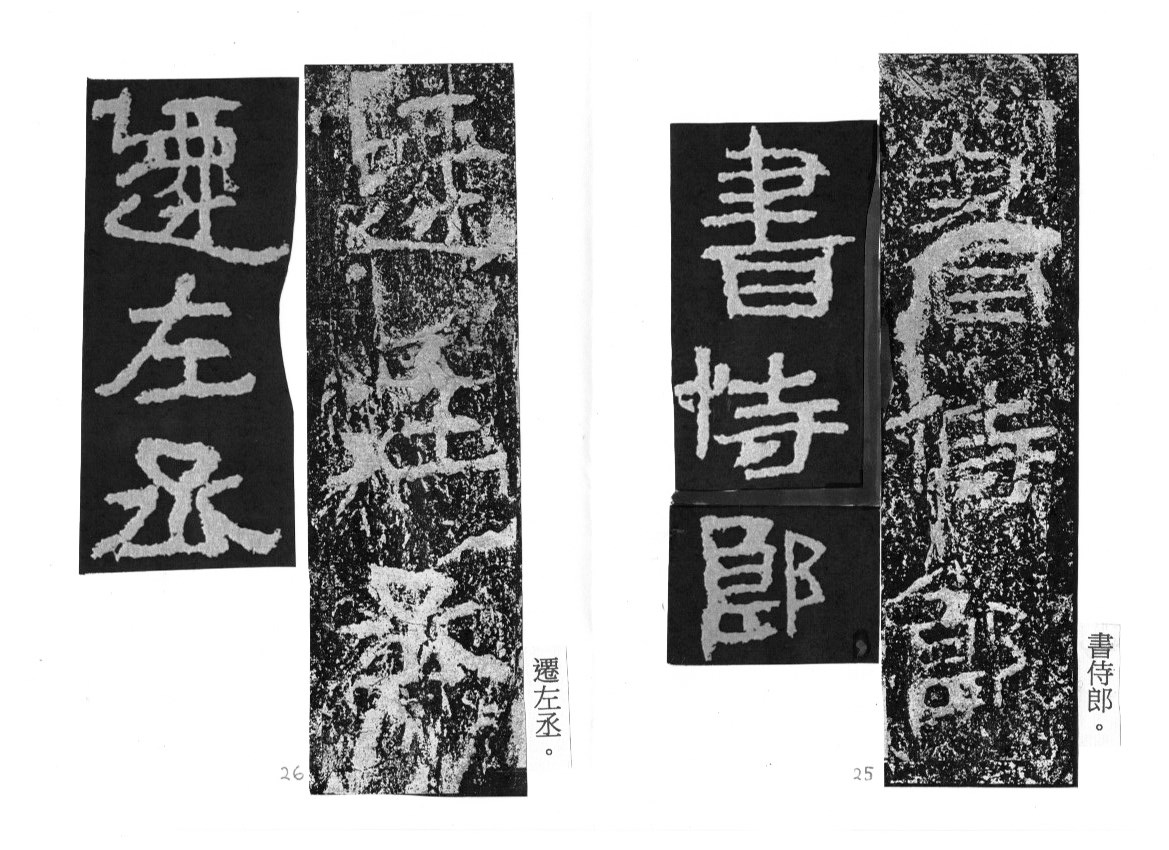 書侍郎。
書侍郎
書侍郎
25
遷左丞。
遷左丞
遷左丞
26